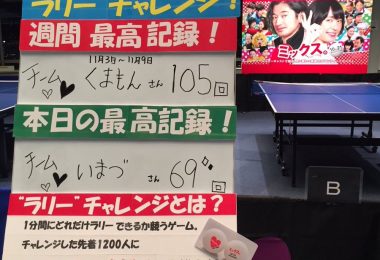 ラリーチャレンジ!
週間 最高記録!
11月3日〜11月9日
チーム くまもん さん 105回
本日の最高記録!
チーム いまづ さん 69回
"ラリー"チャレンジとは?
1分間にどれだけラリーできるか競うゲーム。
チャレンジした先着1200人に
ミックス。
B